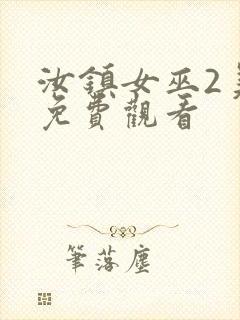 汝鎮女巫2
免費觀看
筆落塵